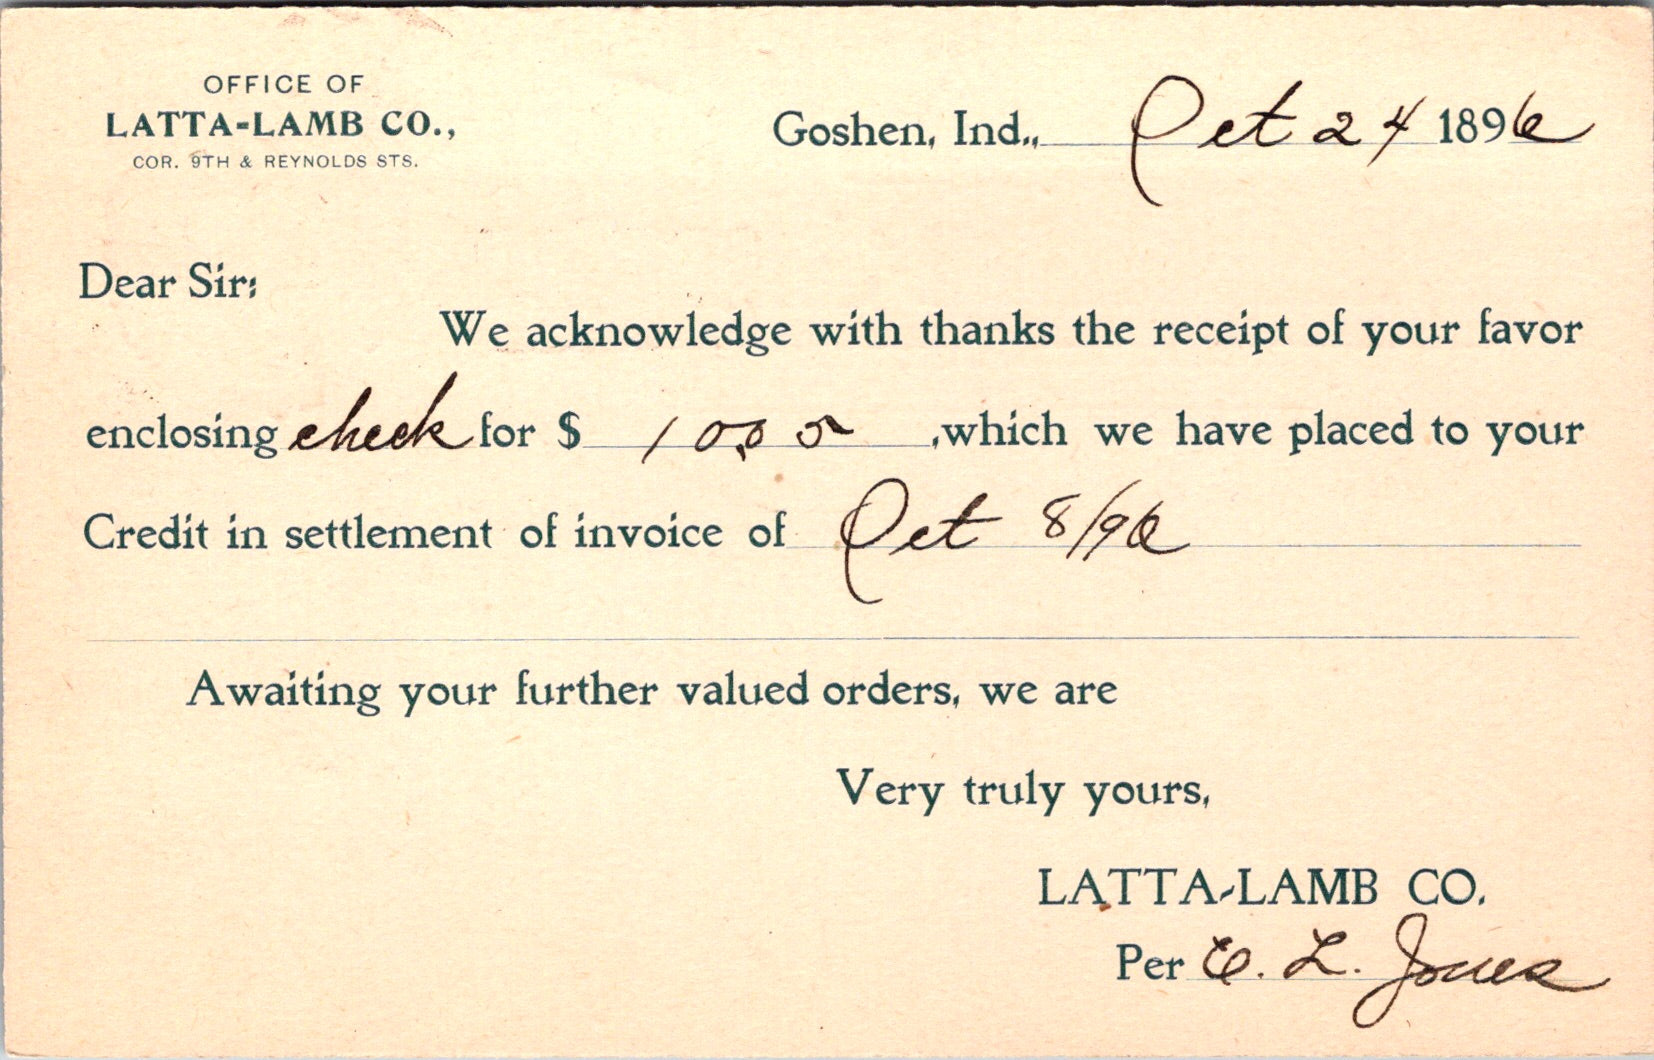 OFFICE OF
LATTA-LAMB CO.,
COR. 9TH & REYNOLDS STS.
Goshen, Ind., Oct 24 1896
Dear Sir:
We acknowledge with thanks the receipt of your favor
enclosing check for $ 10.05, which we have placed to your
Credit in settlement of invoice of Oct 8/96
Awaiting your further valued orders, we are
Very truly yours,
LATTA-LAMB CO.
Per E. L. Jones